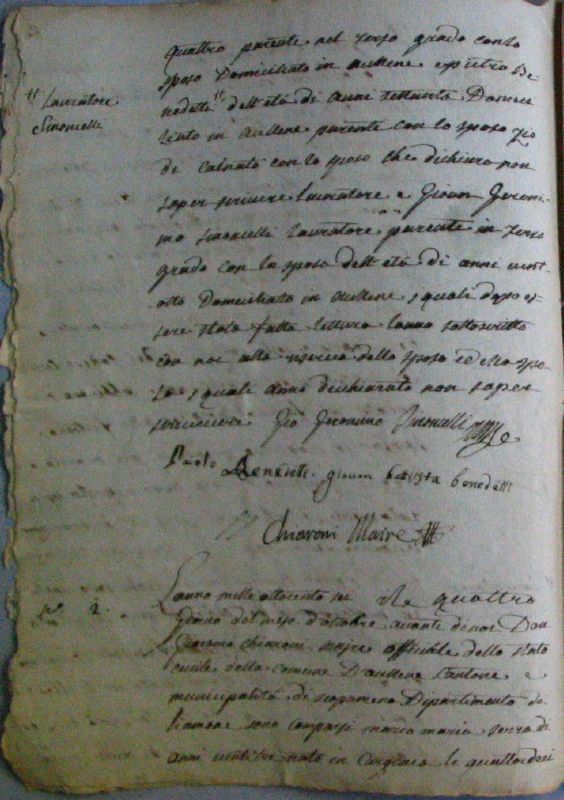 quattro parente nel terzo grado con lo
sposo Domiciliato in aullene e pietro Be
nedetti †† dell'età di anni settanta Domici
†† Lavratore
Simonelli
liato in Aullene parente con lo sposo zio
di Calnato con lo sposo che dichiara non
saper scrivere lavratore e Giovan Geroni
mo simonelli lavratore parente in terzo
grado con la sposa dell'età di anni vent
otto Domiciliato in Aullene, quali dopo es
sere stata fatta lettura hanno sottoscritto
con noi alla riserva dello sposo ed ella spo
sa, quali anno dichiarato non saper
Gio Geronimo Simonelli
Paolo Benedetti giovan batista benedetti
Chiaroni Maire
no 2.
L'anno mille ottocento sei il quattro
Giorno del mese d'ottobre avanti di noi Don
Giacomo chiaroni maire officiale dello stato
civile della comune D'aullene Cantone e
municipalità di scopamene Dipartimento de
Liamone sono comparsi marco maria
anni venti sei nato in Cargiaca li quattordeci